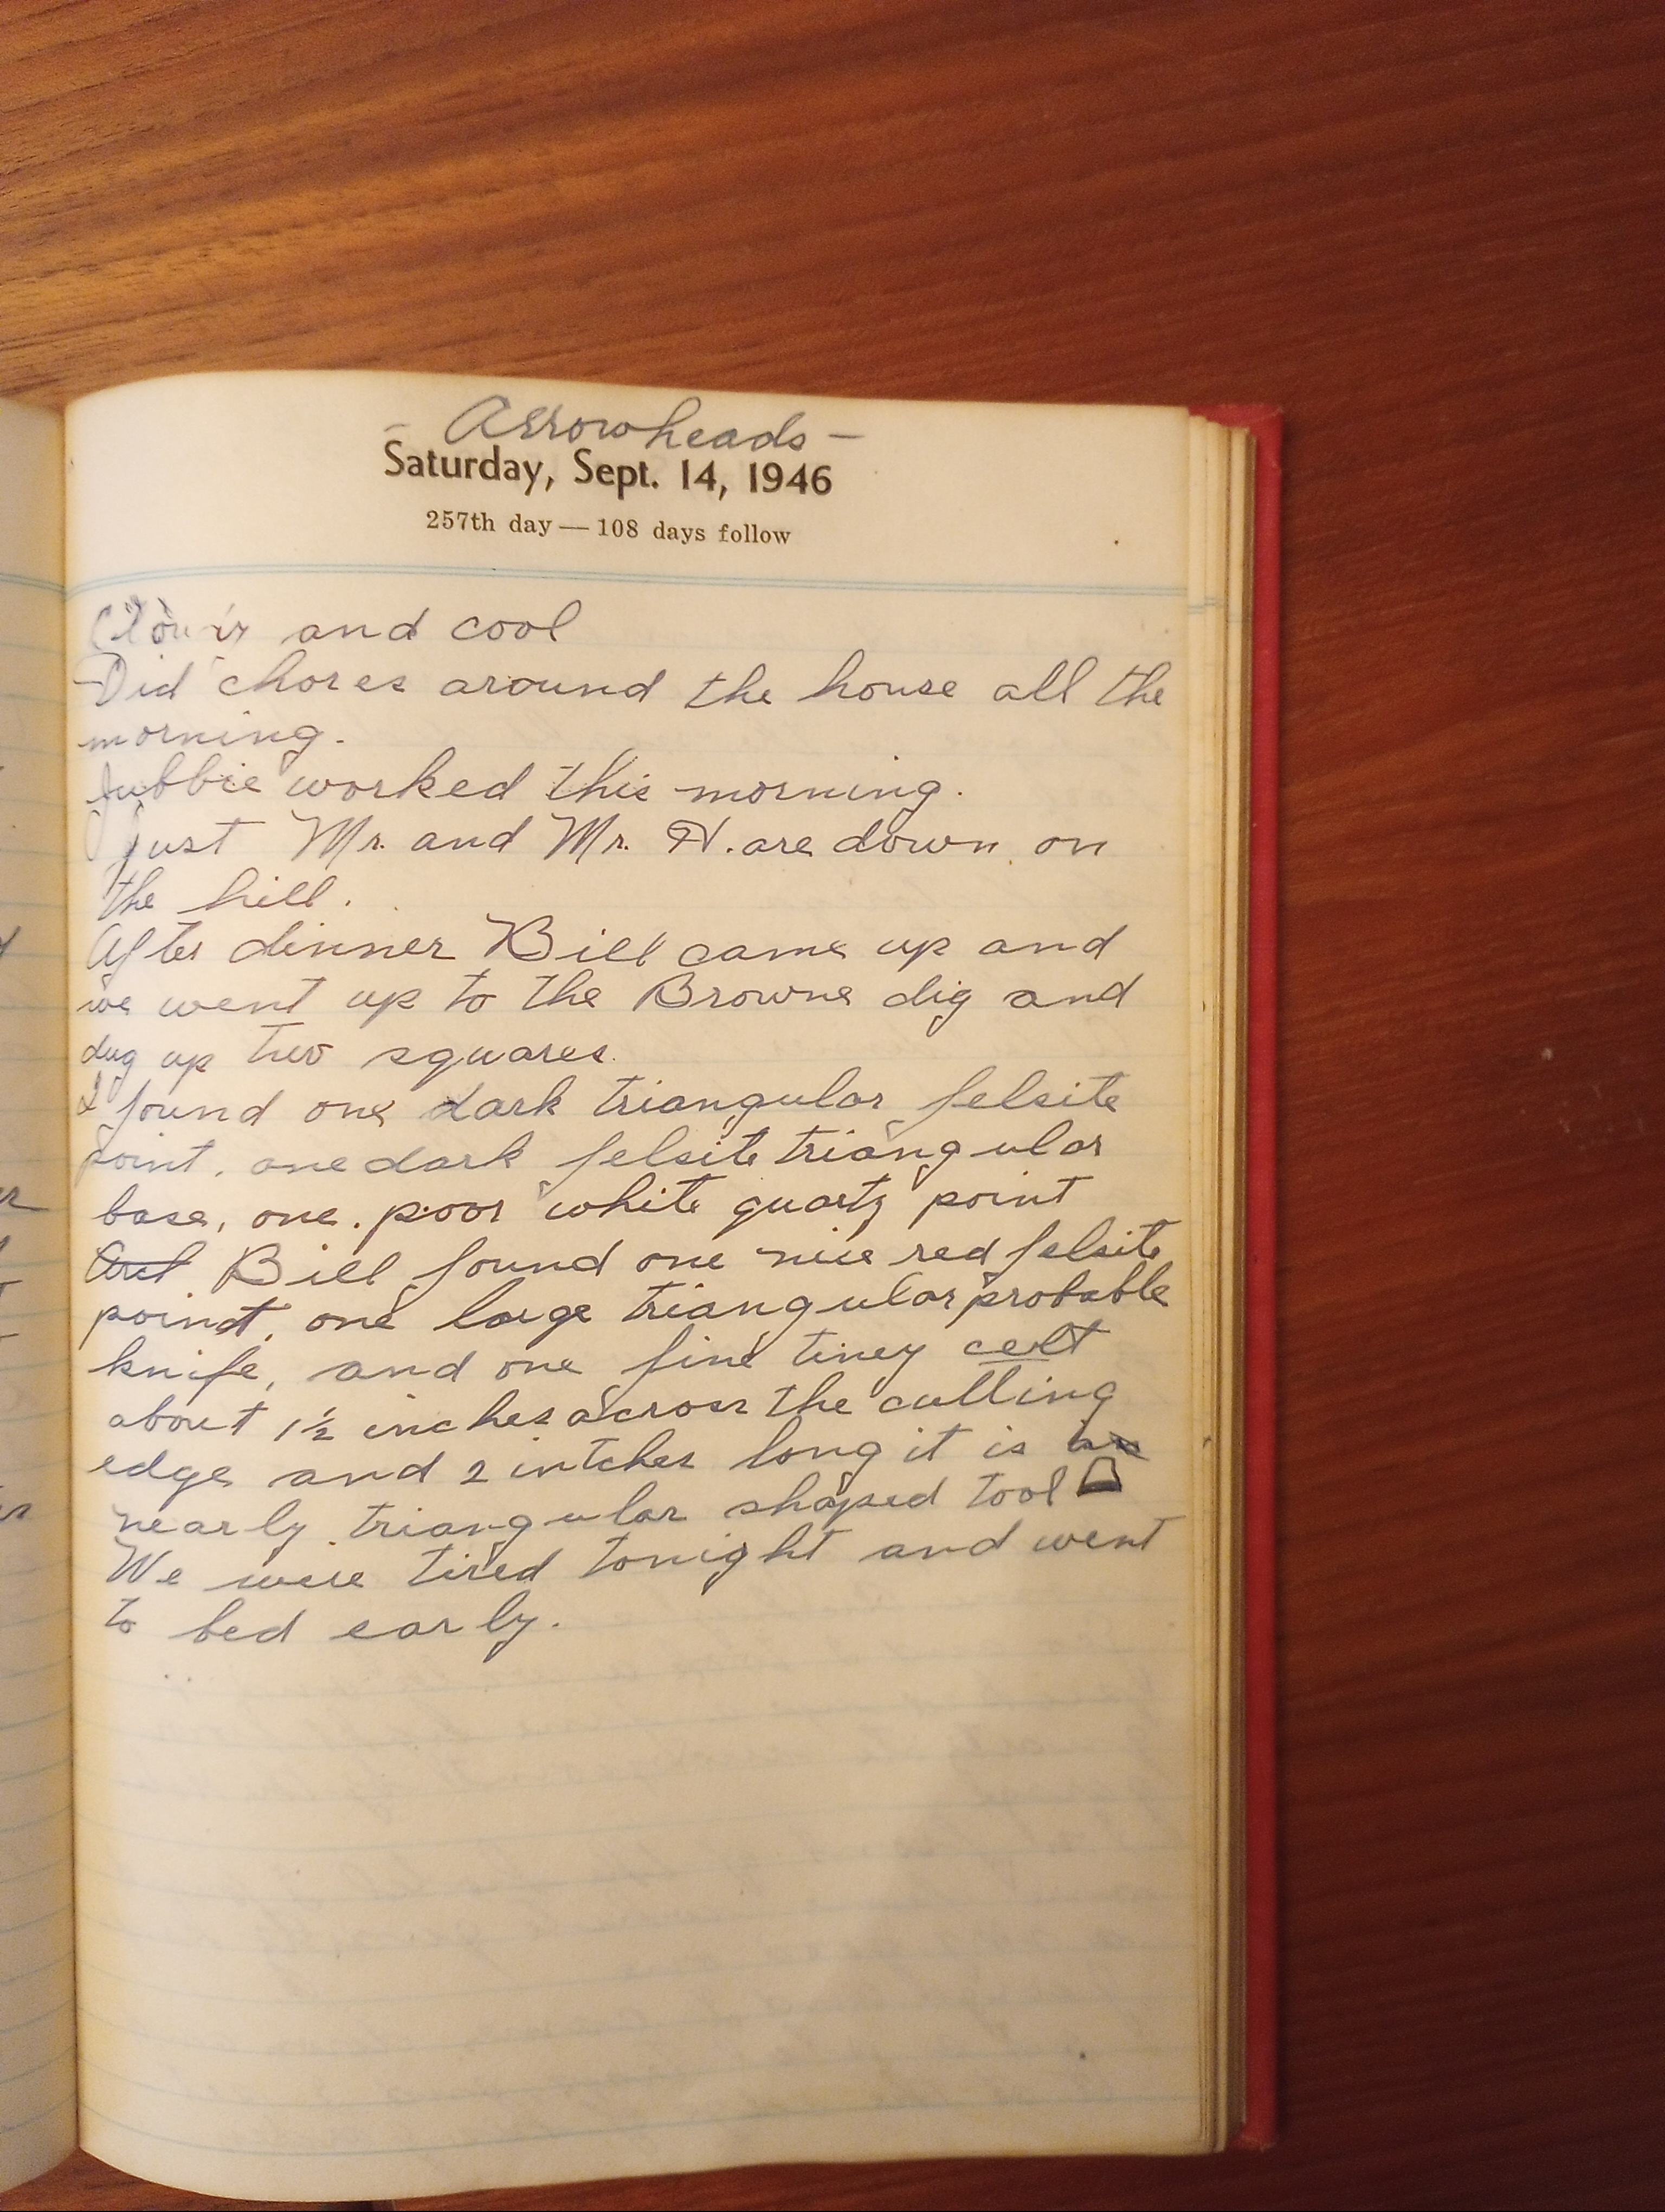 - Arrowheads -
Saturday, Sept. 14, 1946
257th day — 108 days follow
and cool
Did chores around the house all the
morning.
worked this morning.
Just Mr. and Mr. H. are down on
the hill.
After dinner Bill came up and
we went up to the Browne dig and
dug up two squares.
I found one dark triangular felsite
point, one dark felsite triangular
base, one poor white quartz point
Bill found one nice red felsite
point, one large triangular probable
knife, and one fine tiney celt
about 1½ inches across the cutting
edge and 2 intches long it is
nearly triangular shaped tool
We were tired tonight and went
to bed early.